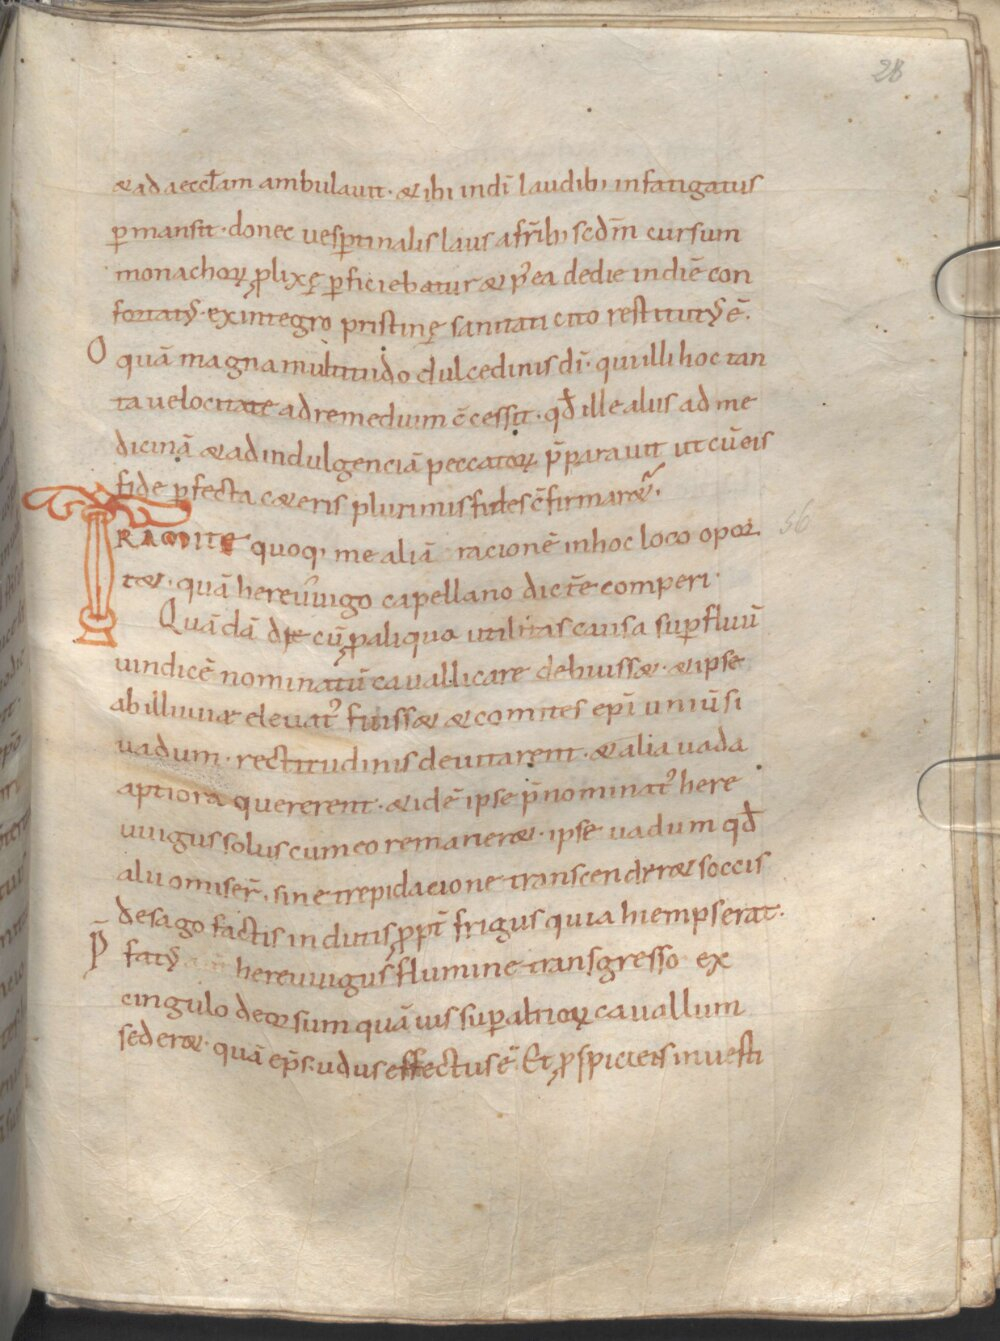 28
& ad aeccl̄am ambulauit · & ibi in dī laudib; infatigatus
ꝑmansit · donec uesꝑtinalis laus a fr̄ib; scd̄m cursum
monachoꝝ ꝓlixę ꝑficiebatur & p̄ea dedie indiē con
fortatꝰ · ex integro pristinę sanitati cito restitutꝰ ē·
O quā magna multitudo dulcedinis dī · qui illi hoc tan
ta uelocitate ad remedium c̄cessit · qd̄ ille alius ad me
dicinā & ad indulgenciā peccatoꝝ p̄parauit ut cū eis
fide ꝑfecta c&eris plurimis fides c̄firmar&ur·
TRAMITE quoq; me aliā racionē in hoc loco opor
56
t& · quā hereuuigo capellano dicēte comperi·
Quādā die cū ꝓ aliqua utilitas causa suꝑfluuiū
uindicē nominatū cauallicare debuiss& · & ipse
ab illuuiae eleuat᾽ fuiss& & comites epī unius si
uadum · rectitudinis deuitarent · & alia uada
aptiora quererent · & idē ipse p̄nominat᾽ here
uuigus solus cum eo remaner& · ipse uadum qd̄
alii omiser̄ · sine trepidacione transcender& soccis
de sago factis indutis ꝓpt̄ frigus quia hiemps erat·
P̄fatꝰ hereuuigus flumine transgresso ex
cingulo deorsum quāuis suꝑ altioꝝ cauallum
seder& · quā ep̄s udus effectus ē· Et ꝓspiciens in uesti